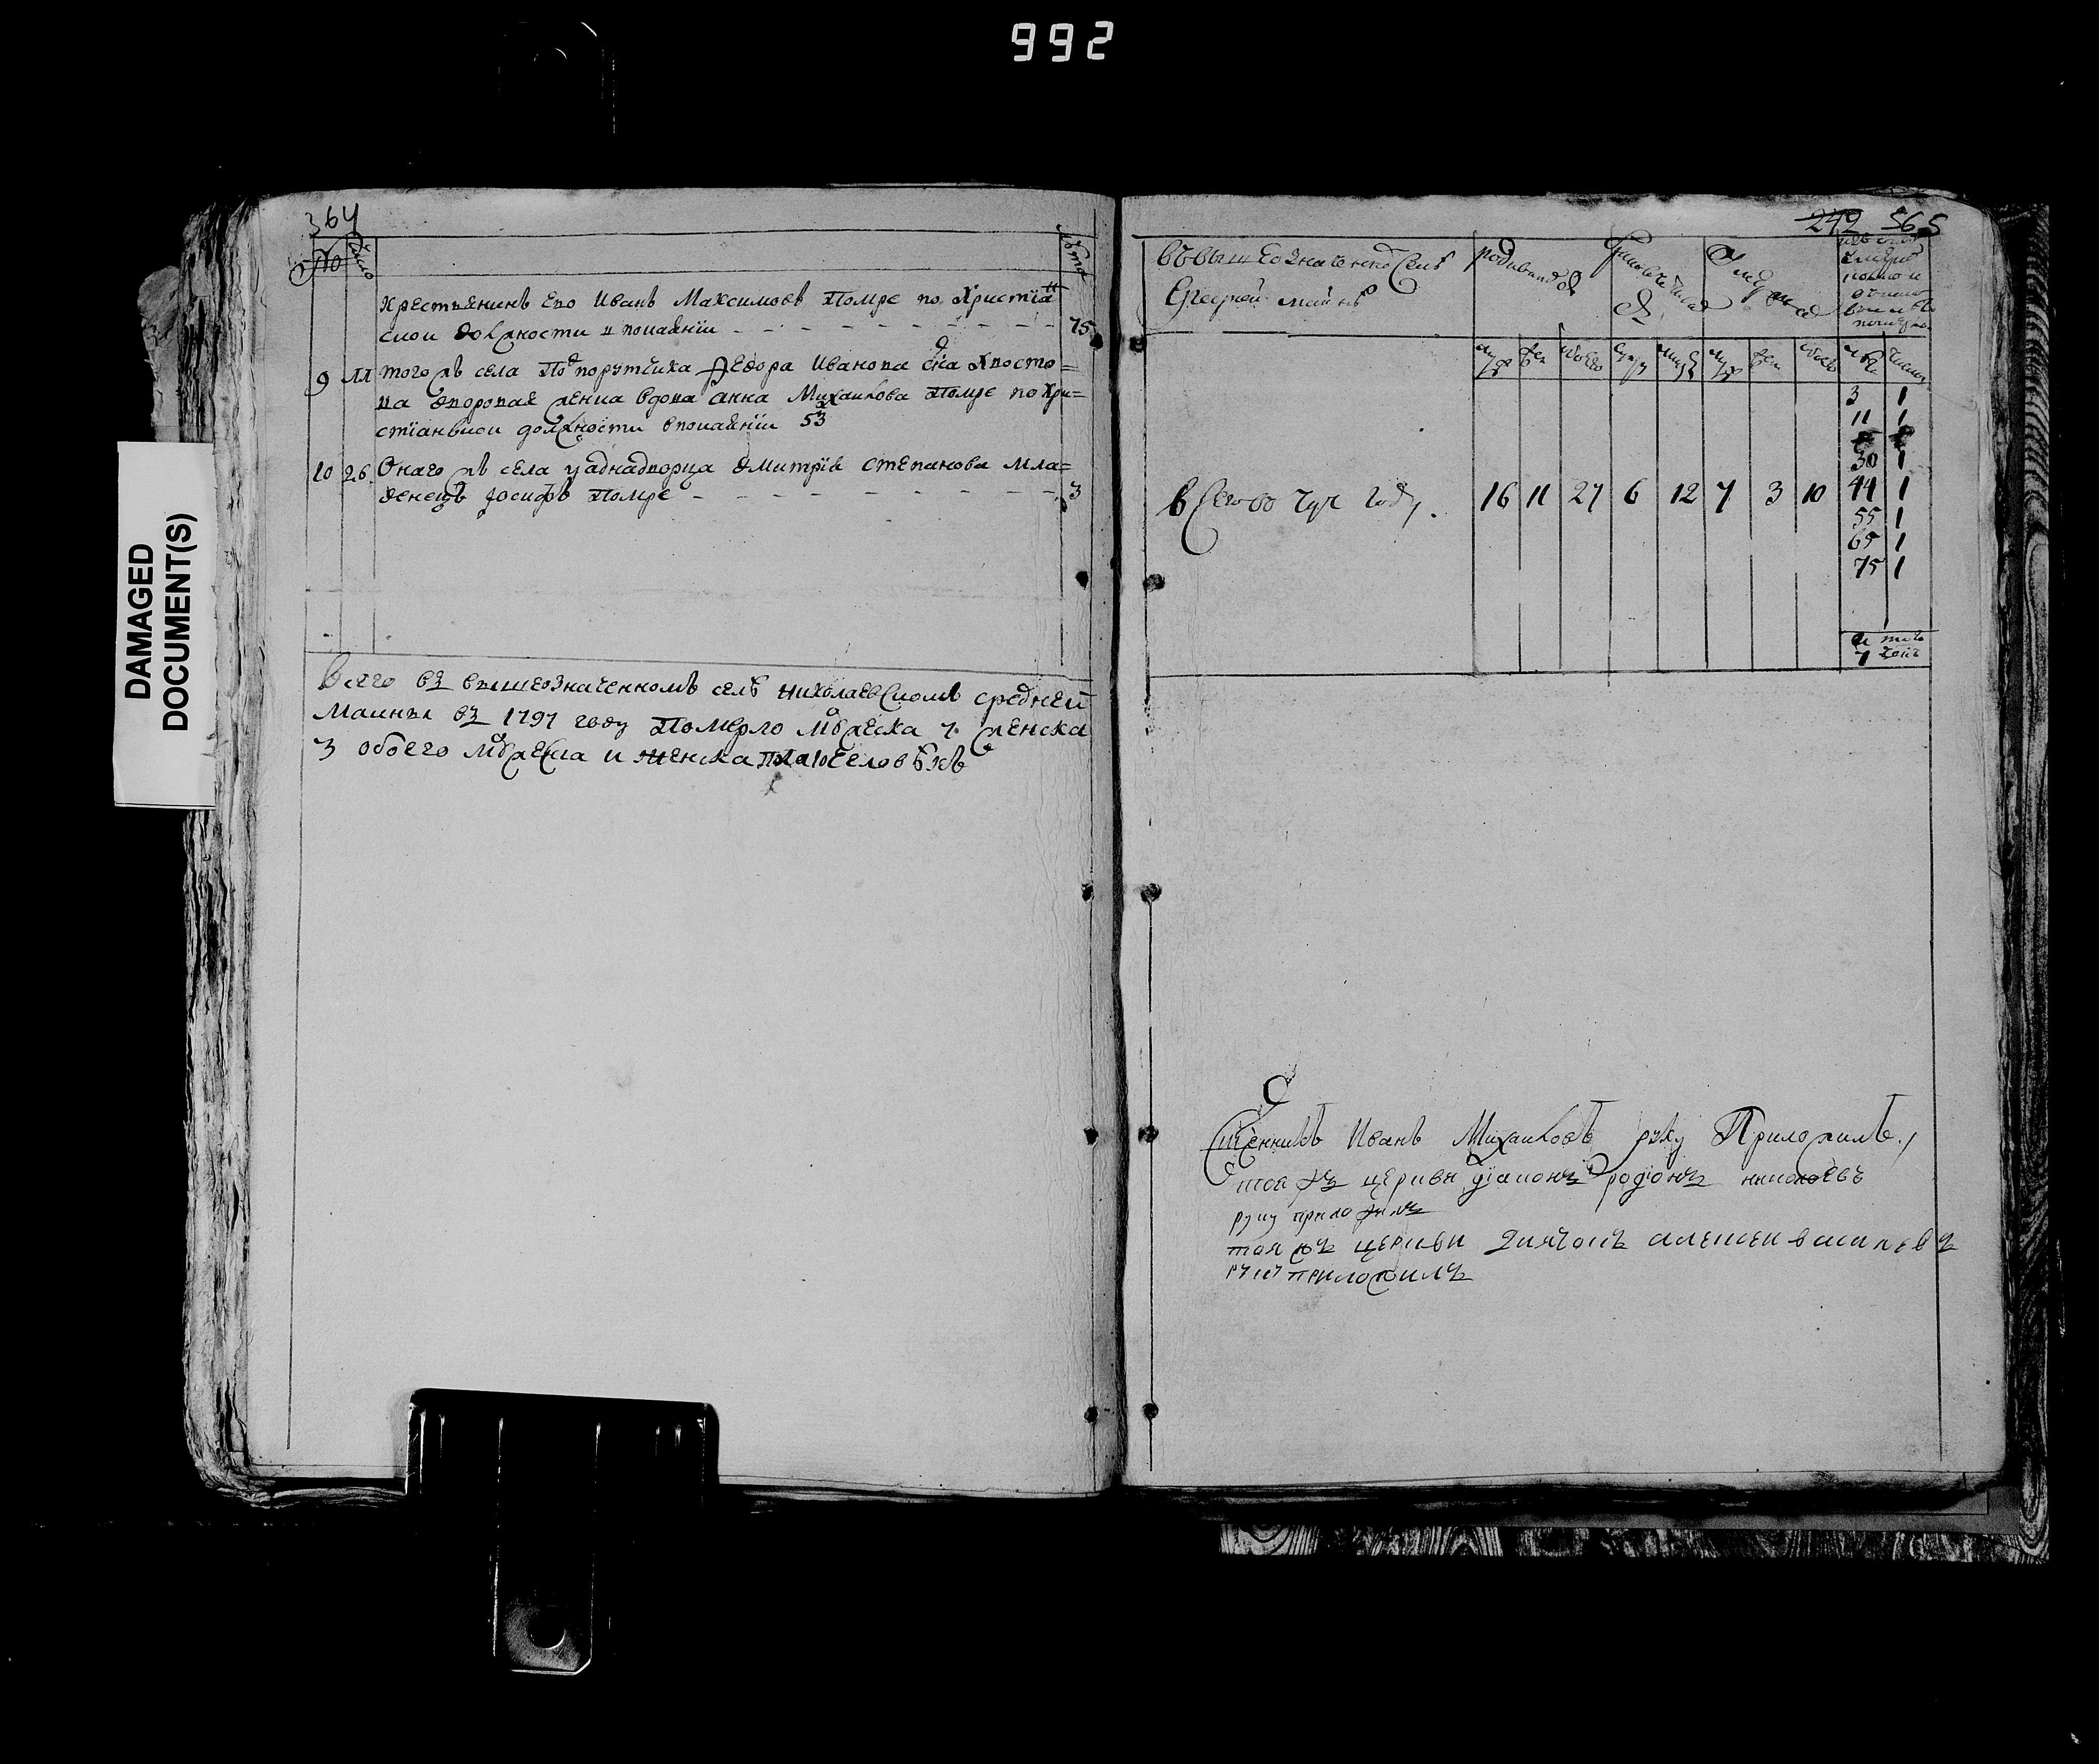 992
DAMAGED
DOCUMENT(S)
364
№ число лѣта
Крестьянинъ Ево Иванъ Максимовъ Помре по Христїан
скои должности в покаянїи 75
9 11 того жъ села Подпорутчика Федора Иванова сна Хвосто=
ва дворовая женка вдова Анна Михаилова Помре по Хри=
стїанскои должности в покаянїи 53
10 26 Онаго жъ села уаднадворца дмитрїя степанова мла=
денецъ Іосифъ Помре 3
Всего въ вышеозначенномъ селѣ николаевскомъ средней
Маинѣ въ 1797 году Померло мужеска 7 женска
3 обоего мужеска и женска пола 10 человѣкъ
249 565
въ вышеозначенно селѣ
Средней маинѣ
родившихся
муж жен обоего муж жен обоего лѣт число
3 1
11 1
30 1
44 1
55 1
65 1
75 1
в сево 1797 году 16 11 27 6 12 7 3 10
и того
7 челов
Сщенникъ Иванъ Михаиловъ руку Приложилъ
тоя жъ церкви дїаконъ родїонъ николаевъ
руку приложилъ
тоя жъ церкви дьячокъ алексеи василевъ
руку приложилъ